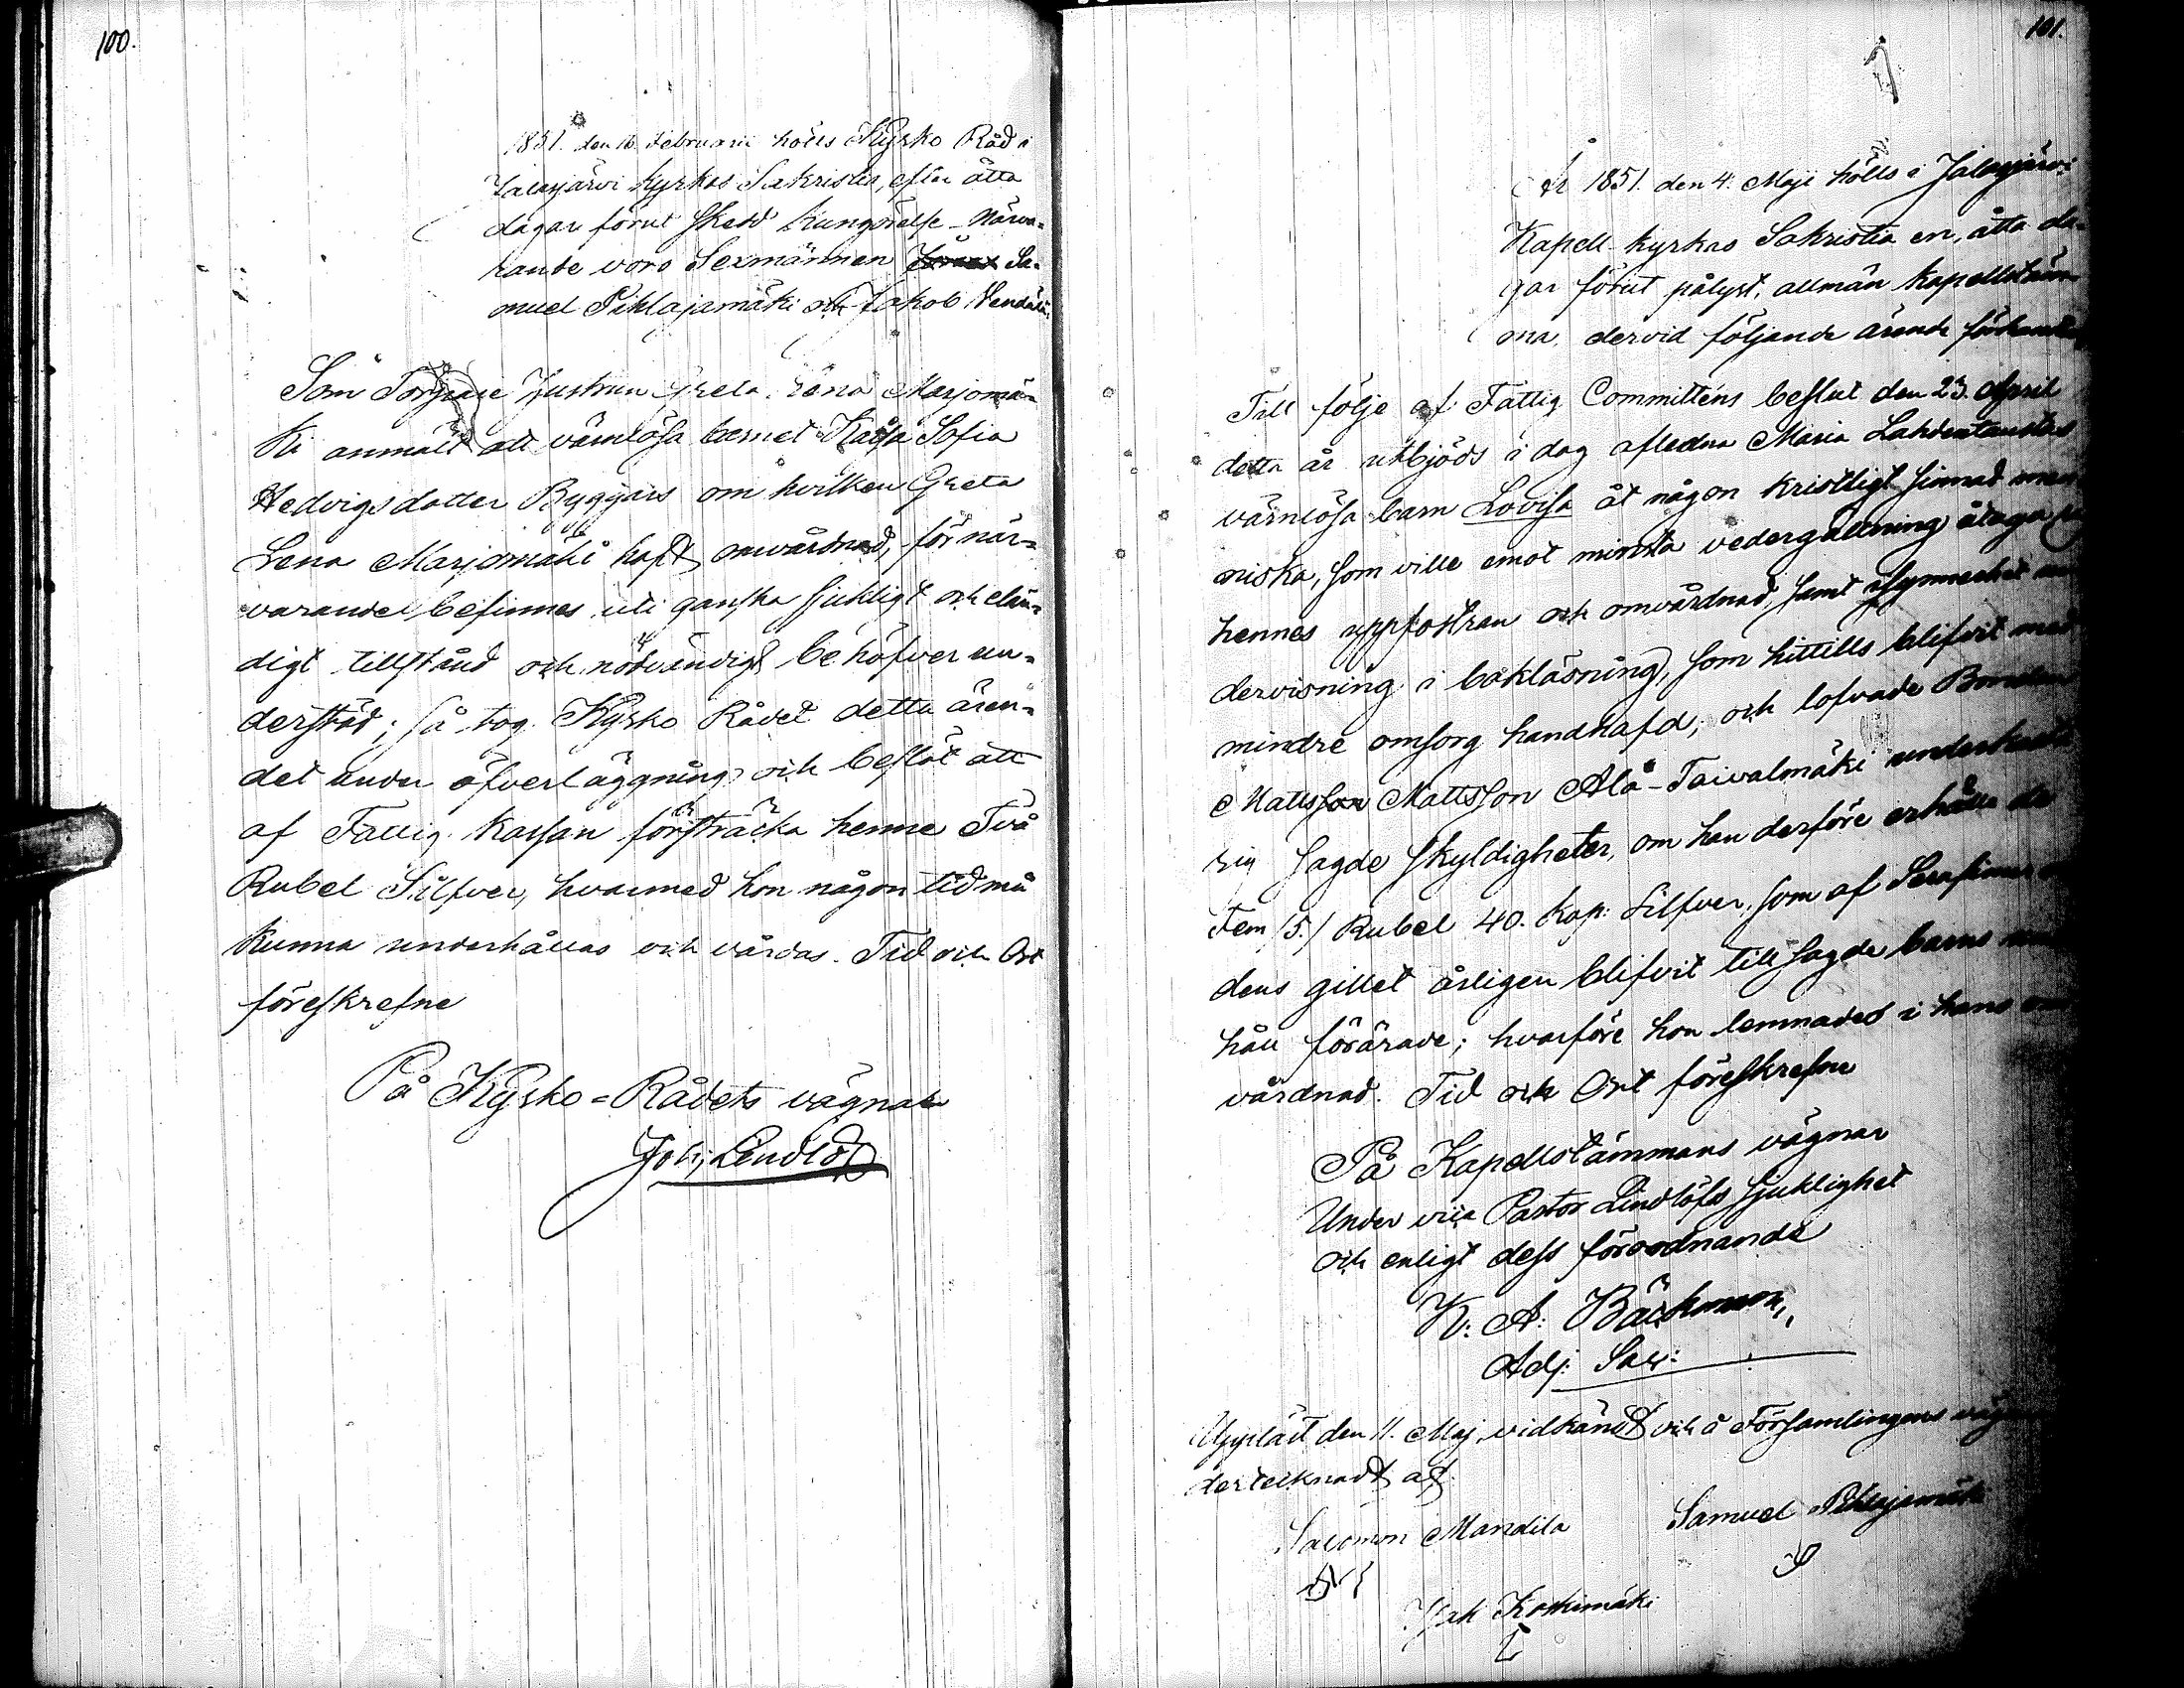 100.
1851. den 16 Februarii hölls Kyrko Råd i
Jalasjärvi Kyrkas Sakristia, efter åtta
dagar förut skedd kungörelse. Närva=
rande voro Sexmännen Sa=
muel Pihlajamäki och Jakob
Som Torparе Hustrun Greta Lena Marjomä=
ki anmält att värnlösa barnet Kajsa Sofia
Hedvigsdotter Byggars om hvilken Greta
Lena Marjomäki haft omvårdnad, för när=
varande befinnes uti ganska sjukligt och elän=
digt tillstånd och nödvändigt behöfver un=
derstöd; så tog Kyrko Rådet detta ären=
det under öfverläggning och beslöt att
af Fattig Kassan försträcka henne Två
Rubel Silfver, hvarmed hon någon tid må
kunna underhållas och vårdas. Tid och Ort
föreskrefne
På Kyrko=Rådets vägnar
Joh: Lindlöf
101.
År 1851. den 4. Maji hölls i Jalasjärvi
Kapell kyrkas Sakristia en, åtta da=
gar förut pålyst, allmän Kapellstäm
ma, dervid följande ärende
Till följe af Fattig Committéns beslut den 23. April
detta år utbjöds i dag afledna Maria Lahdentaustas
värnlösa barn Lovisa åt någon kristligt sinnad men
niska, som ville emot minsta vedergällning åtaga sig
hennes uppfostran och omvårdnad, samt isynnerhet un
dervisning i bokläsning, som hittills blifvit med
mindre omsorg handhafd; och lofvade Bonden
Mattsson Mattsson Ala-Taivalmäki underkasta
sig sagde skyldigheter, om han derföre erhålla de
Fem /5./ Rubel 40. Kop: Silfver, som af Serafimer
dens gillet årligen blifvit till sagde barns under
håll förärade; hvarföre hon lemnades i hans om
vårdnad. Tid och Ort föreskrefne
På Kapellstämmans vägnar
Under v: Pastor Lindlöfs sjuklighet
och enligt dess förordnande
K: A: Bäckman,
Adj: Sacr:
Uppläst den 11. Maj, vidkändt och å Församlingens vägn
dertecknadt af
Salomon Mandila Samuel Pihlajamäki
Jak Koskimäki